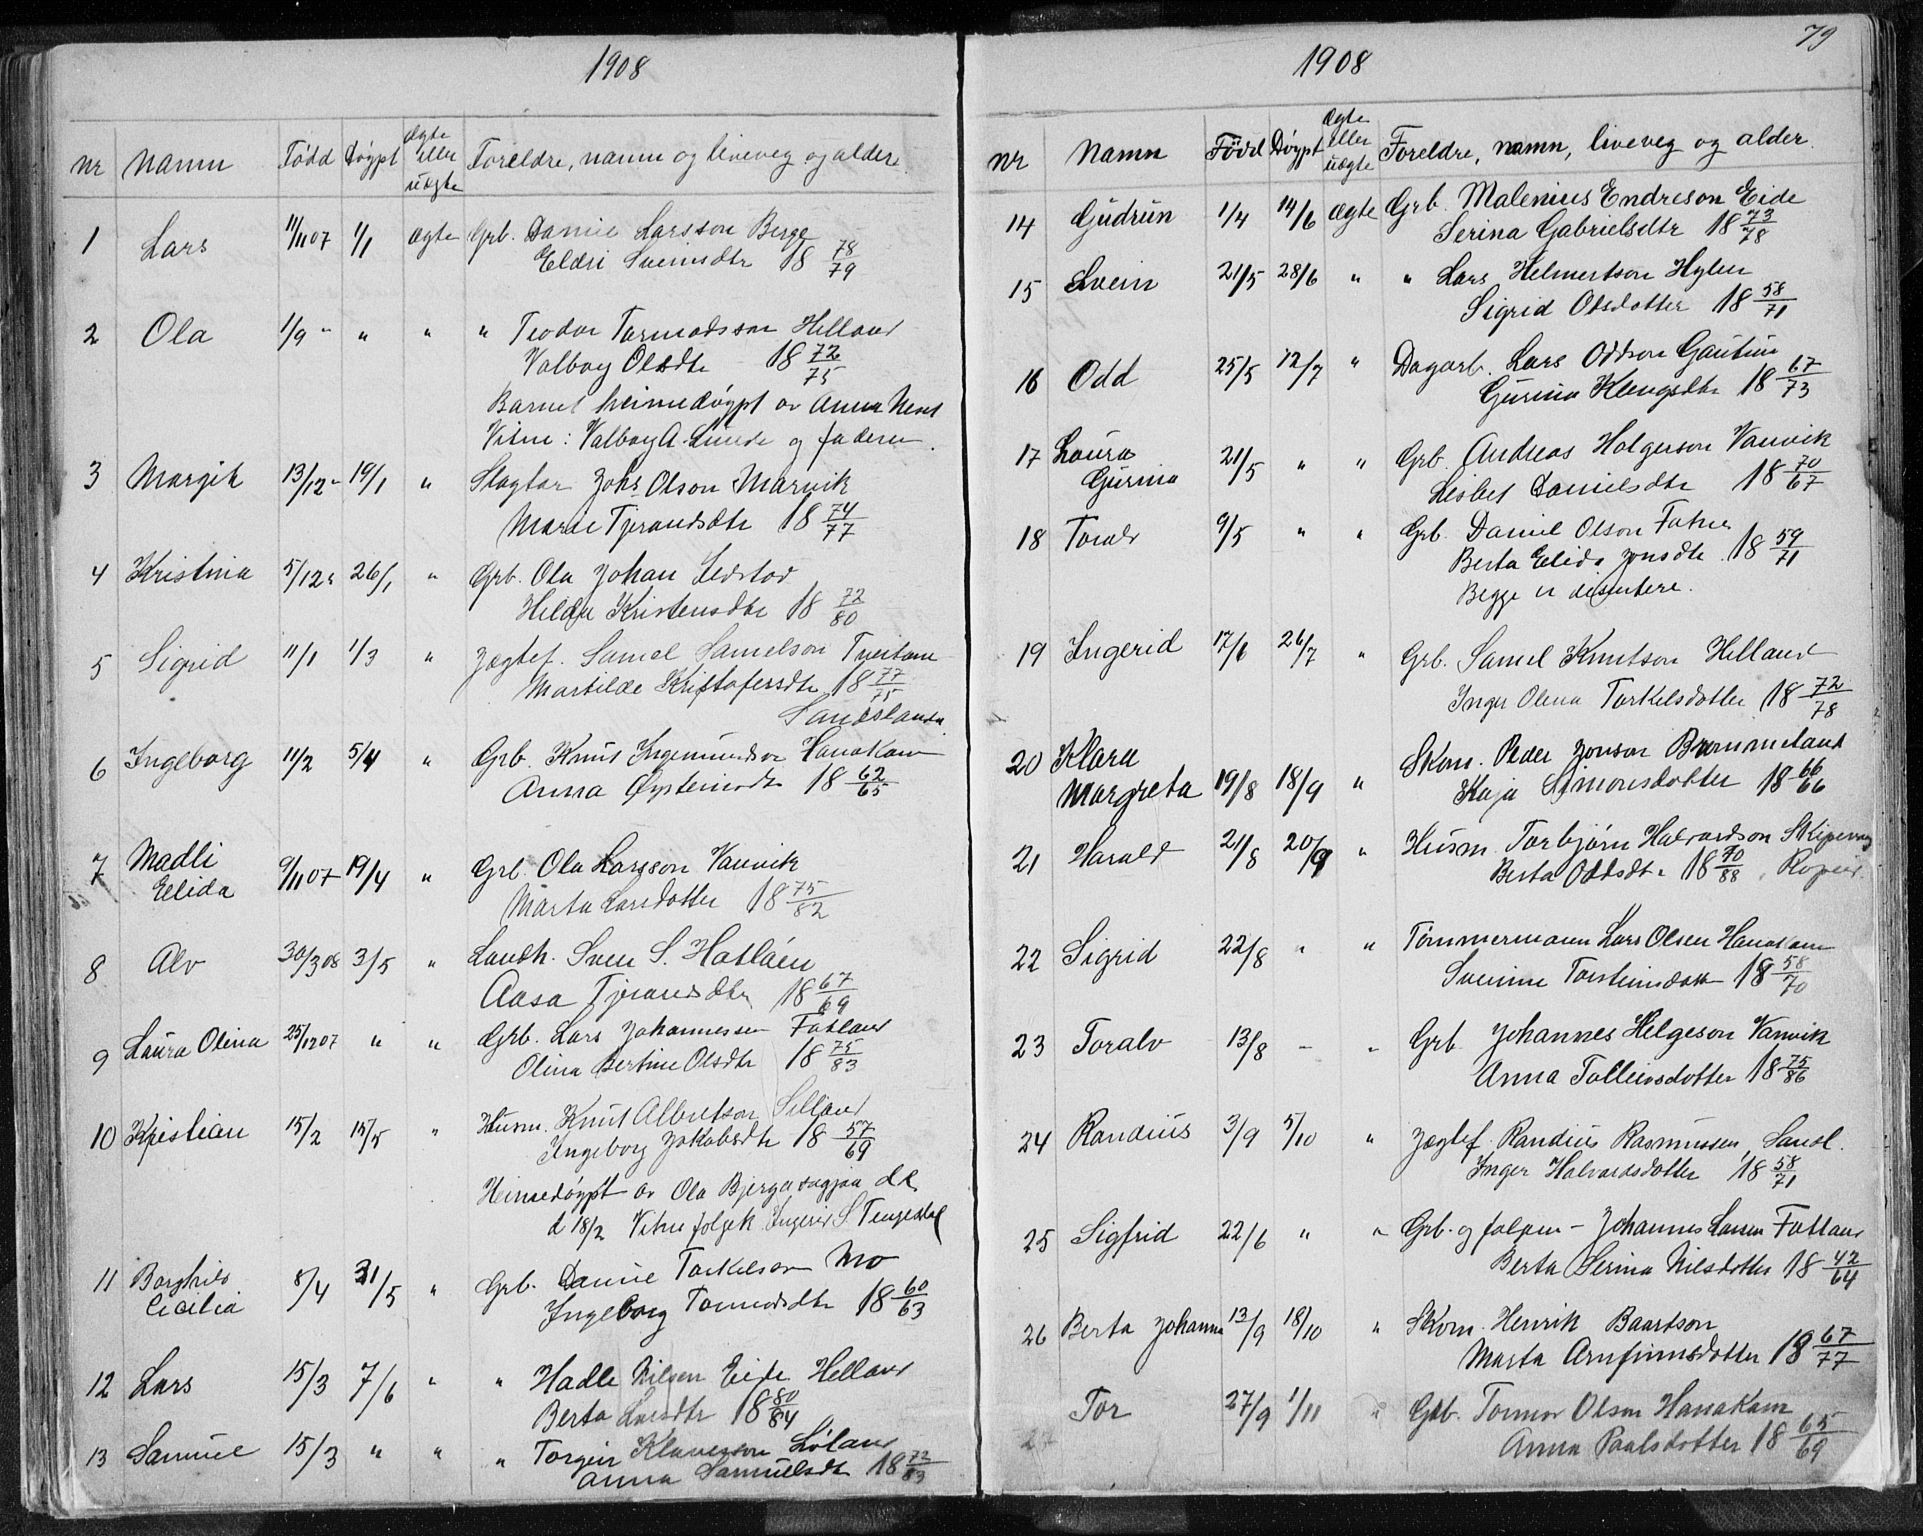 1908
nr Namn Född Døypt ægte eller uægte Foreldre, namn og liveveg og alder.
1 Lars 11/11 07 1/1 ægte Grb. Daniel Larsson Berge
Eldri Sveinsdtr 18 78/79
2 Ola 1/9 " " " " Teodor Tormodsson Helland
Valborg Olsdtr 18 72/75
Barnet heimedøypt av Anna
Vitne: Valborg A. og faderen.
3 Margit 13/12 " 19/1 " Slagtar Johs Olson Marvik
Marta Tjerandsdtr 18 74/77
4 Kristina 5/12 " 26/1 " Grb. Ola Johan
Helga Kristensdtr 18 72/80
5 Sigrid 11/1 1/3 " Jægtef. Samel Samelson
Martilde Kristofersdtr 18 77/75
6 Ingeborg 11/2 5/4 " Grb. Knut Ingemundson Hanakam
Anna Øysteinsdtr 18 62/65
7 Madli Elida 9/11 07 19/4 " Grb. Ola Larsson Vanvik
Marta Larsdotter 18 75/82
8 Alv 30/3 08 3/5 " Landh. Sven S. Hatløen
Aasa Tjerandsdtr 18 67/69
9 Laura Olina 25/12 07 " " Grb. Lars Johannessen Fatland
Olina Bertine Olsdtr 18 75/83
10 Kristian 15/2 15/5 " Husm. Knut Albretson
Ingeborg Jakobsdtr 18 57/69
Heimedøypt av Ola
d 18/2 Vitne Ingerid S Tengesdal
11 Borghild Cecilia 8/4 31/5 " Grb. Daniel Torkelson Mo
Ingeborg Tormodsdtr 18 60/63
12 Lars 15/3 7/6 " " Hadle Nilsen Eide Helland
Berta Larsdtr 18 80/84
13 Samuel 15/3 " " " Torgeir Klaverson Løland
Anna Samuelsdtr 18 72/83
79
1908
nr Namn Född Døypt ægte eller uægte Foreldre, namn, liveveg og alder.
14 Gudrun 1/4 14/6 ægte Grb. Malenius Endreson Eide
Serina Gabrielsdtr 18 73/78
15 Svein 21/5 28/6 " " Lars Helmertson Hylen
Sigrid Olsdotter 18 58/71
16 Odd 25/5 12/7 " Dagarb. Lars Oddson Gautun
Gurina 18 67/73
17 Laura Gurina 21/5 " " Grb. Andreas Holgerson Vanvik
Lisbet Danielsdtr 18 70/67
18 Toralv 9/5 " " Grb. Daniel Olson Fatnes
Berta Elida Jonsdtr 18 59/71
Begge er disentere.
19 Ingerid 17/6 26/7 " Grb. Samel Knutson Helland
Inger Olena Torkelsdotter 18 72/78
20 Klara Margreta 19/8 18/9 " Skom. Peder Jonson Brommeland
Kaja Simonsdotter 18 66/66
21 Harald 21/8 20/9 " Husm Torbjørn Halvardson
Berta Oddsdtr 18 70/88
22 Sigrid 22/8 " " Tømmermann Lars Olsen Hanakam
Sveinine Torsteinsdotter 18 58/70
23 Toralv 13/8 - " Grb Johannes Helgeson Vanvik
Anna Tolleivsdotter 18 75/86
24 Randius 3/9 5/10 " Jægtef. Randius Rasmussen, Sandl.
Inger Halvardsdotter 18 58/71
25 Sigfrid 22/6 " " Grb. og - Johannes Larsen Fatland
Berta Serina Nilsdotter 18 42/64
26 Berta Johanna 13/9 18/10 " Skom. Henrik Baartson
Marta Arnfinnsdotter 18 67/77
27 Tor 27/9 1/11 " Grb. Tormod Olson Hanakam
Anna Paalsdotter 18 65/69